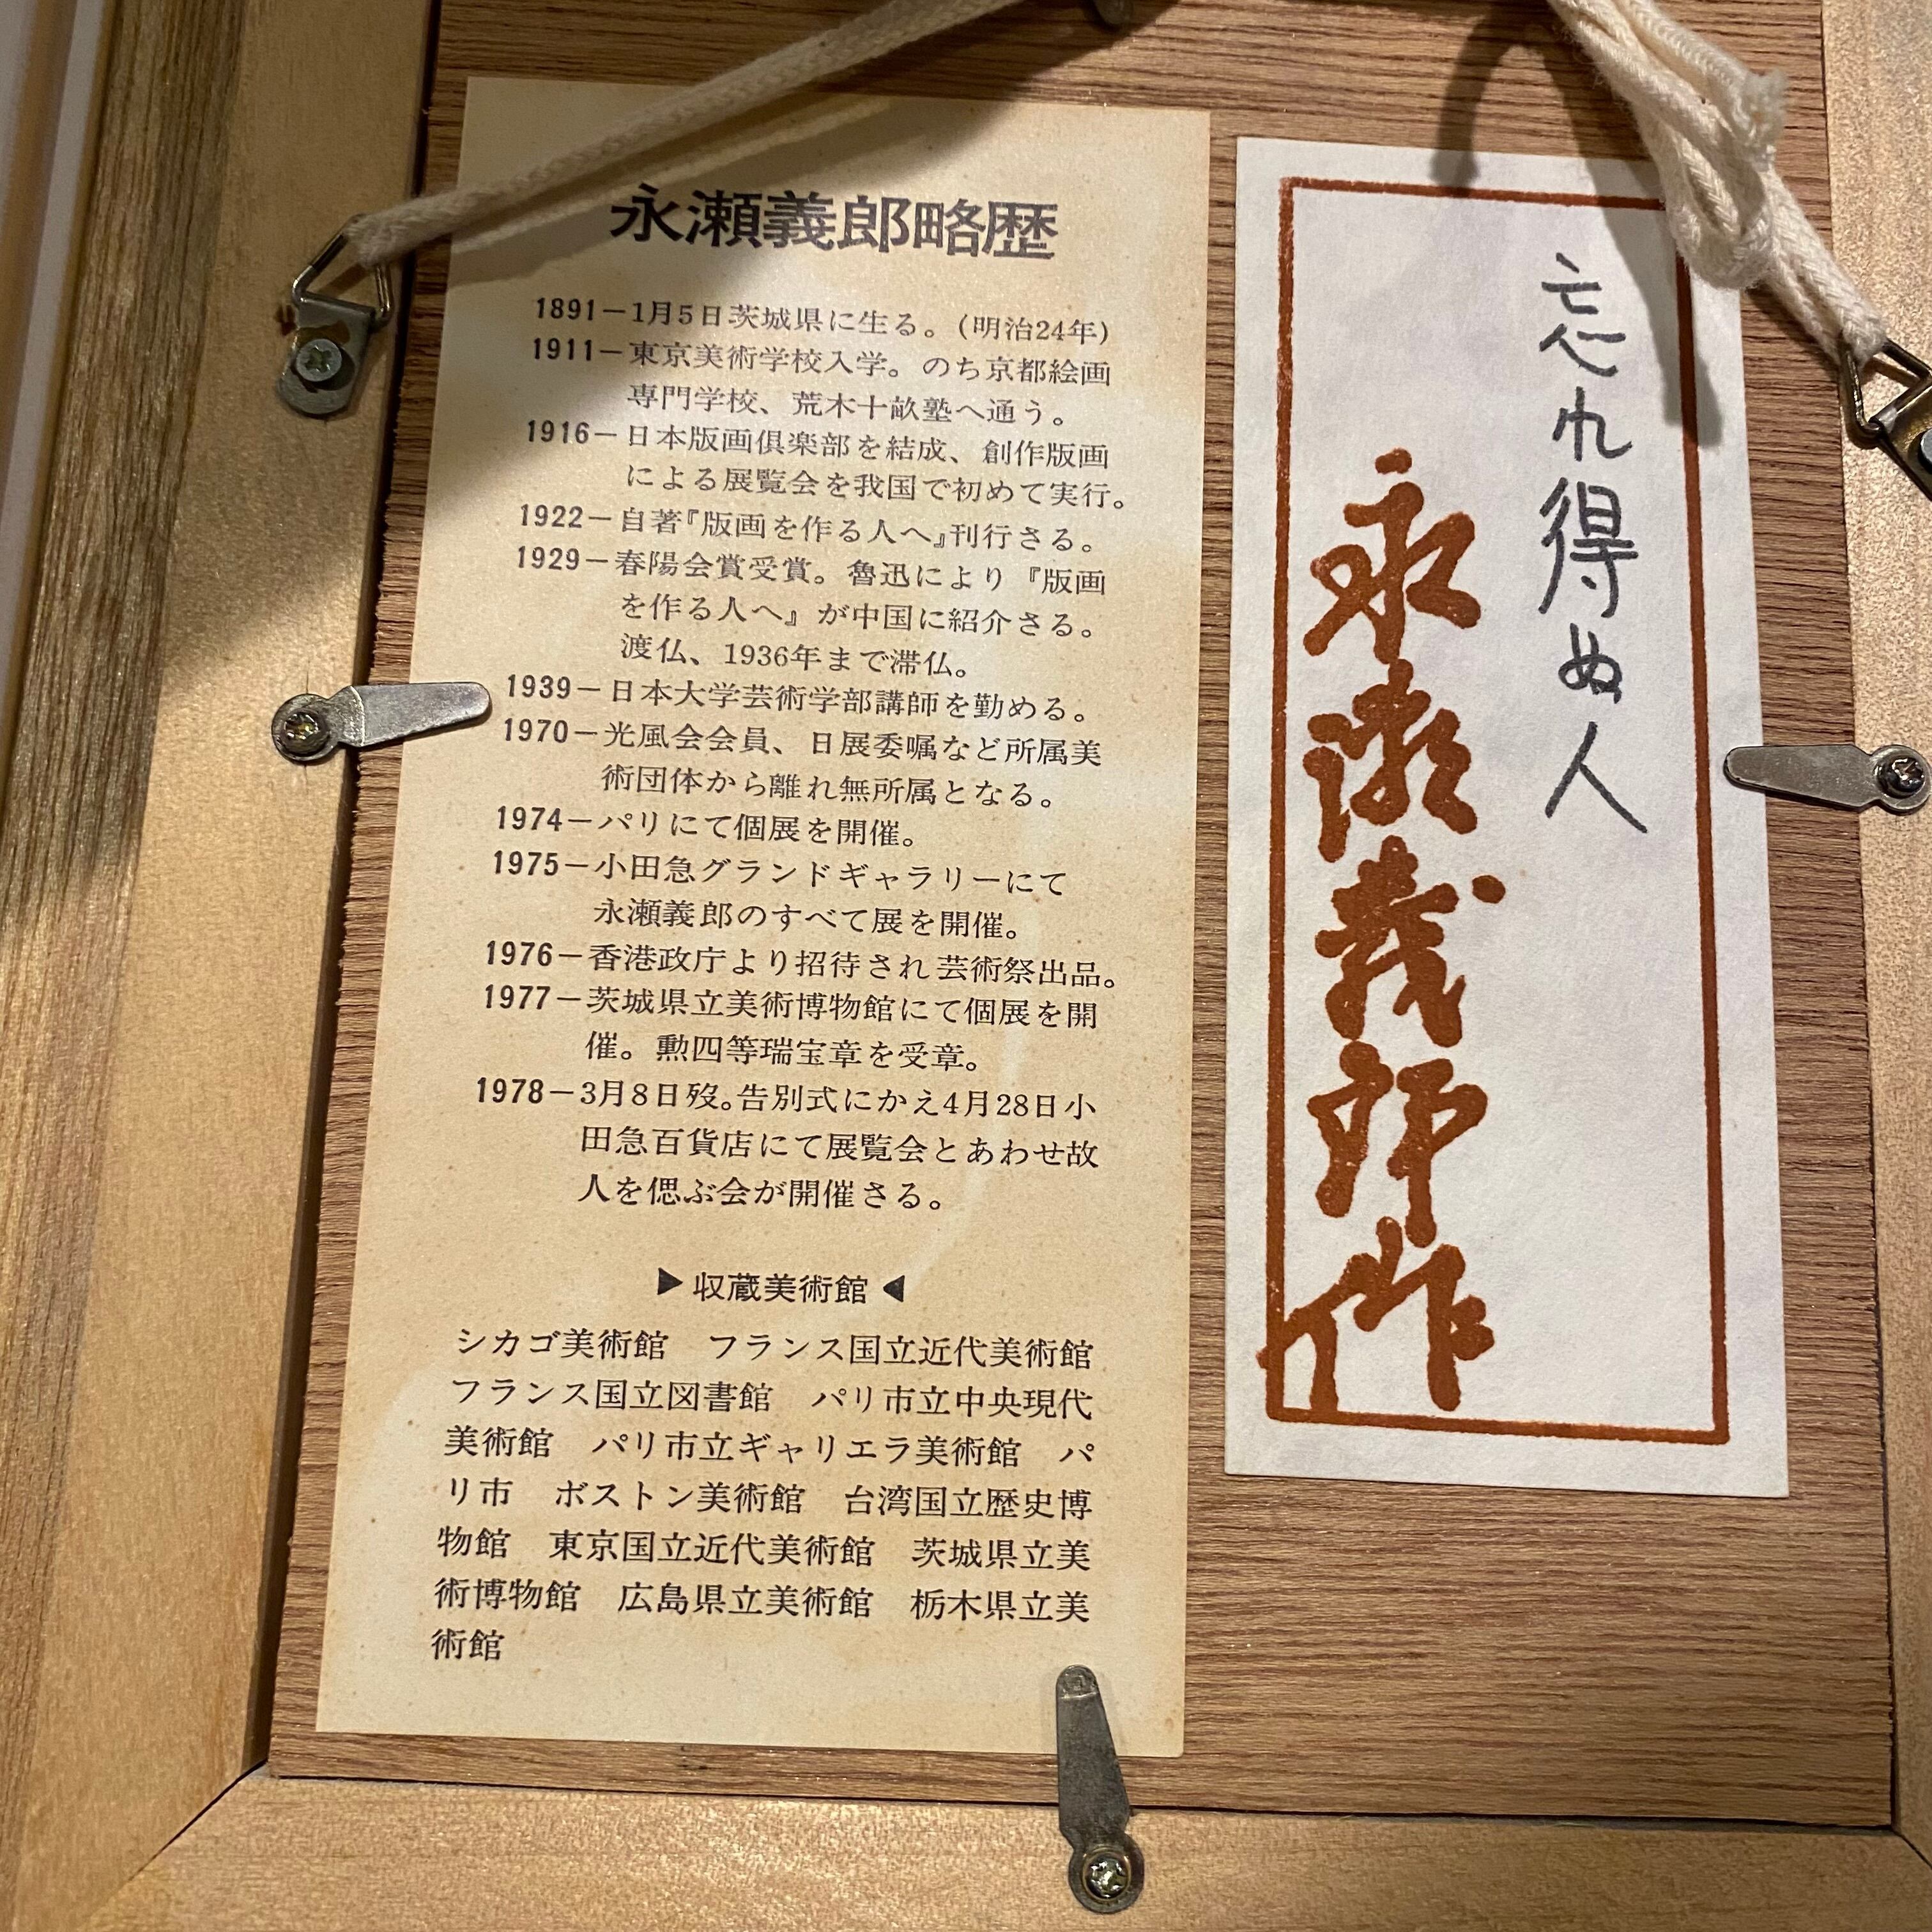 永瀬義郎略歴
1891－1月5日茨城県に生る。(明治24年)
1911－東京美術学校入学。のち京都絵画
専門学校、荒木十畝塾へ通う。
1916－日本版画倶楽部を結成、創作版画
による展覧会を我国で初めて実行。
1922－自著『版画を作る人へ』刊行さる。
1929－春陽会賞受賞。魯迅により『版画
を作る人へ』が中国に紹介さる。
渡仏、1936年まで滞仏。
1939－日本大学芸術学部講師を勤める。
1970－光風会会員、日展委嘱など所属美
術団体から離れ無所属となる。
1974－パリにて個展を開催。
1975－小田急グランドギャラリーにて
永瀬義郎のすべて展を開催。
1976－香港政庁より招待され芸術祭出品。
1977－茨城県立美術博物館にて個展を開
催。勲四等瑞宝章を受章。
1978－3月8日歿。告別式にかえ4月28日小
田急百貨店にて展覧会とあわせ故
人を偲ぶ会が開催さる。
▶収蔵美術館◀
シカゴ美術館　フランス国立近代美術館
フランス国立図書館　パリ市立中央現代
美術館　パリ市立ギャリエラ美術館　パ
リ市　ボストン美術館　台湾国立歴史博
物館　東京国立近代美術館　茨城県立美
術博物館　広島県立美術館　栃木県立美
術館
忘れ得ぬ人
永瀬義郎作